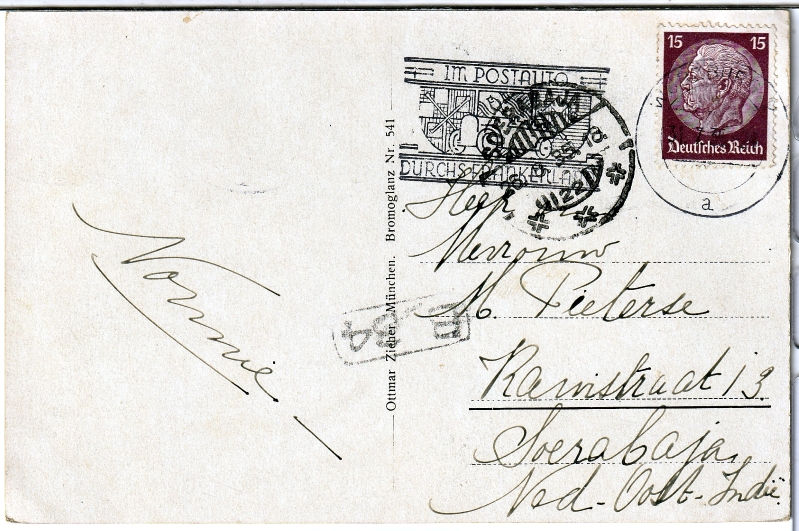 Nonnie
Ottmar Zieher, München. Bromoglanz Nr. 541
IM POSTAUTO
DURCHS FRANKENLAND
SOERABAJA
15 15
Deutsches Reich
a
Heer en
Mevrouw
M. Pieterse
straat 13
Soerabaja
Ned-Oost-Indië